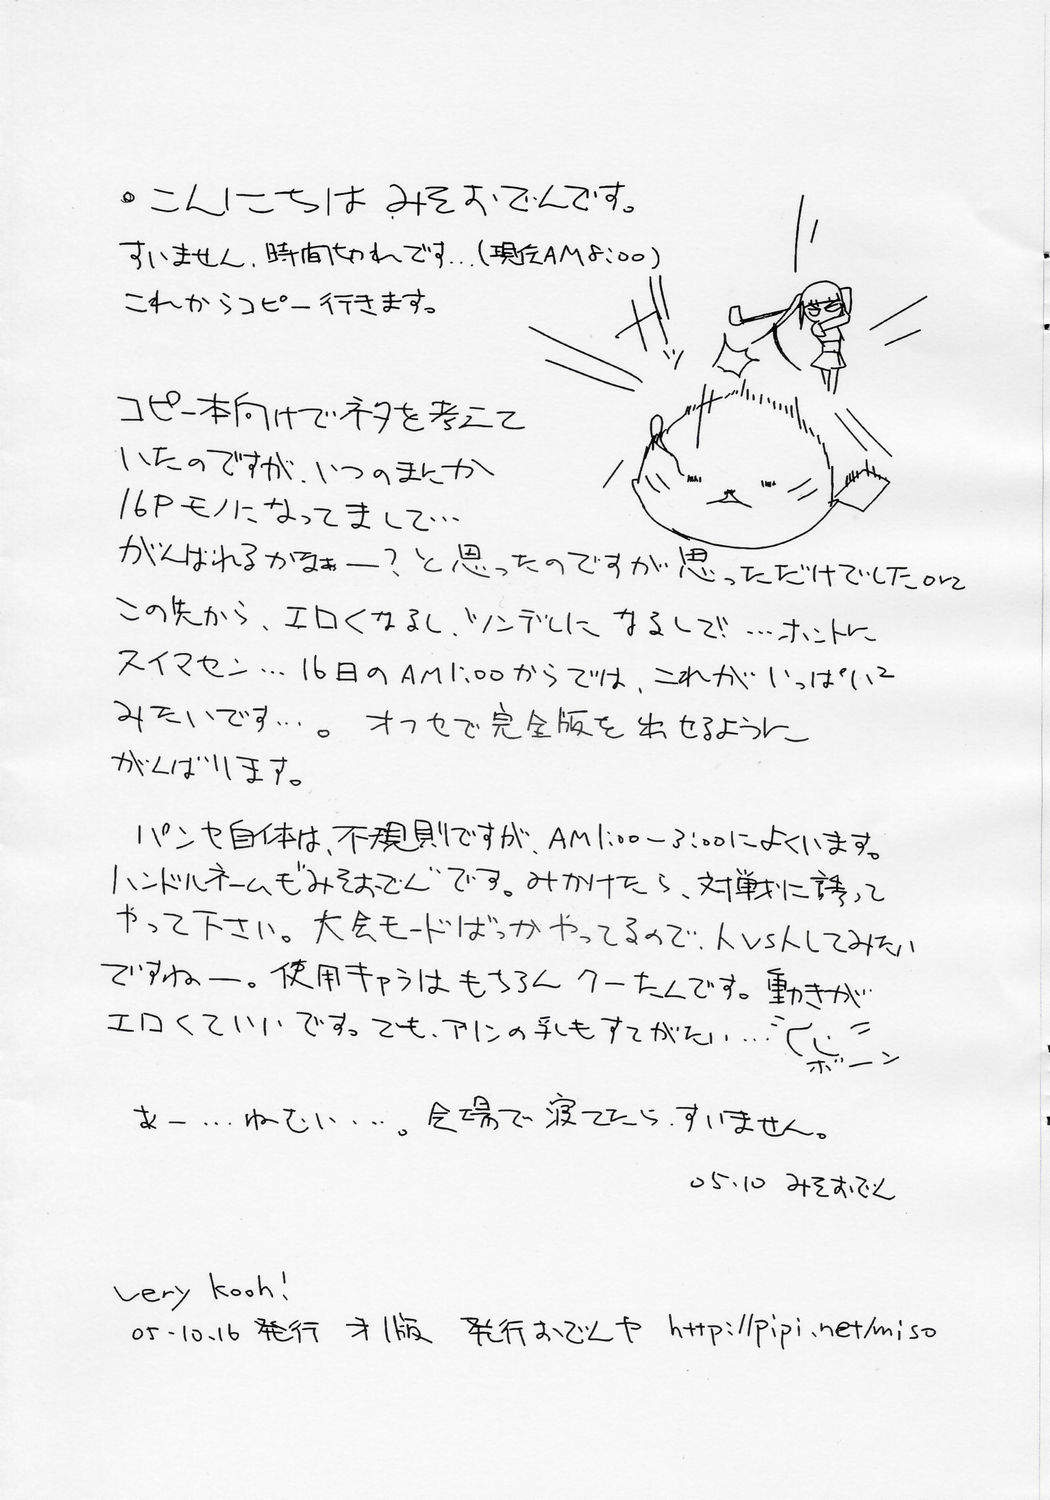 ・こんにちは みそおでんです。
すいません、時間切れです…(現在AM8:00)
これからコピー行きます。
ガッ
コピー本向けでネタを考えて
いたのですが、いつのまにか
16Pモノになってまして…
がんばれるかなぁー?と思ったのですが思っただけでしたorz
この先から、エロくなるし、ツンデレになるしで!…ホントに
スイマセン…16日のAM1:00からでは、これがいっぱい2
みたいです…。 オフセで完全版を出せるように
がんばります。
パンヤ自体は、不規則ですが、AM1:00-3:00によくいます。
ハンドルネームも"みそおでん"です。みかけたら、対戦に誘って
やって下さい。大会モードばっかやってるので、人vs人してみたい
ですねー。使用キャラはもちろん クーたんです。動きが
エロくていいです。でも、アリンの乳もすてがたい…
ボーン
あー…ねむい…。会場で寝てたら、すいません。
05.10 みそおでん
very kooh!
05.10.16 発行 オ1版 発行おでんや http://pipi.net/miso